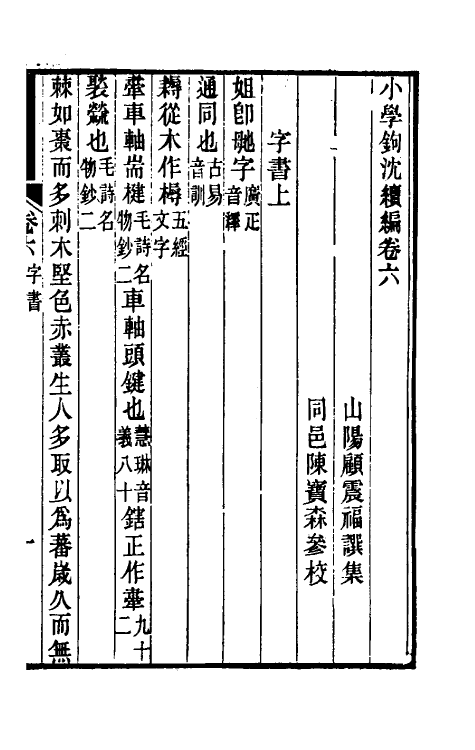 小學鉤沈續編卷六
山陽顧震福譔集
同邑陳寶森參校
字書上
姐卽毑字廣正音釋
通同也古易音訓
耨從木作槈五經文字
舝車軸耑楗毛詩名物鈔二車軸頭鍵也慧琳音義八十鎋正作舝九十二
褧𧝓也毛詩名物鈔二
棘如棗而多刺木堅色赤叢生人多取以爲蕃歲久而無
卷六字書
一